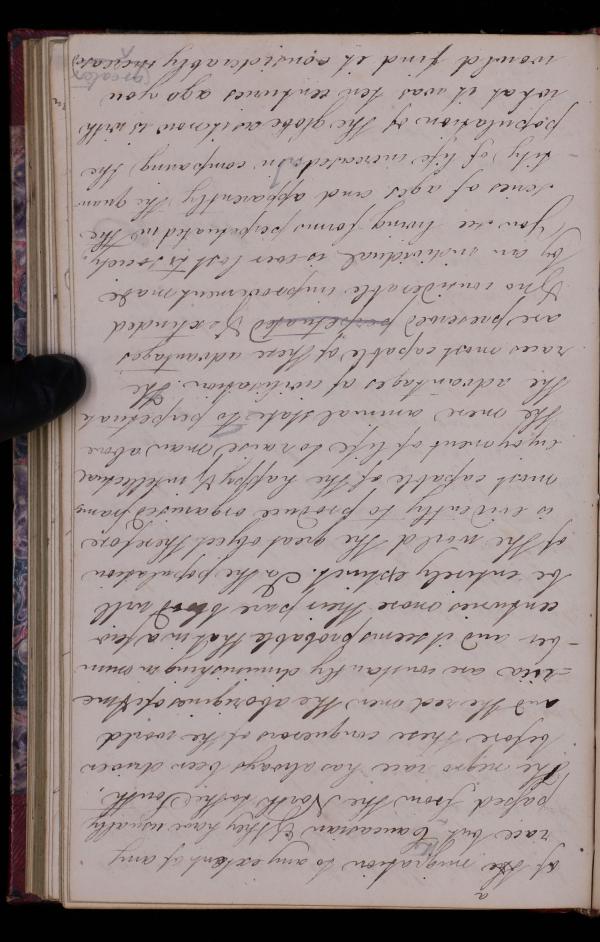 a
of the migration to any extent of any
race but Caucasian & they have usually
passed from the North to the South.
The negro race has always been driven
before these conquerors of the world
and the red ones the aborigines of
-rica are constantly diminishing in num
-ber and it seems probable that in a few
centuries more their pure blood will
be entirely extinct. In the population
of the world the great object therefore
is evidently to produce organised frames
most capable of the happy & intellectual
enjoyment of life to raise man above
the mere animal state to perpetuate
the advantages of civilization. The
races most capable of these advantages
are preserved perpetuated & extended
& no considerable improvement made
by an individual is ever lost to society.
You see living forms perpetuated in the
series of ages and apparently the quan
-tity of life increased. In comparing the
population of the globe as it now is with
what it was ten centuries ago you
would find it considerably
greater